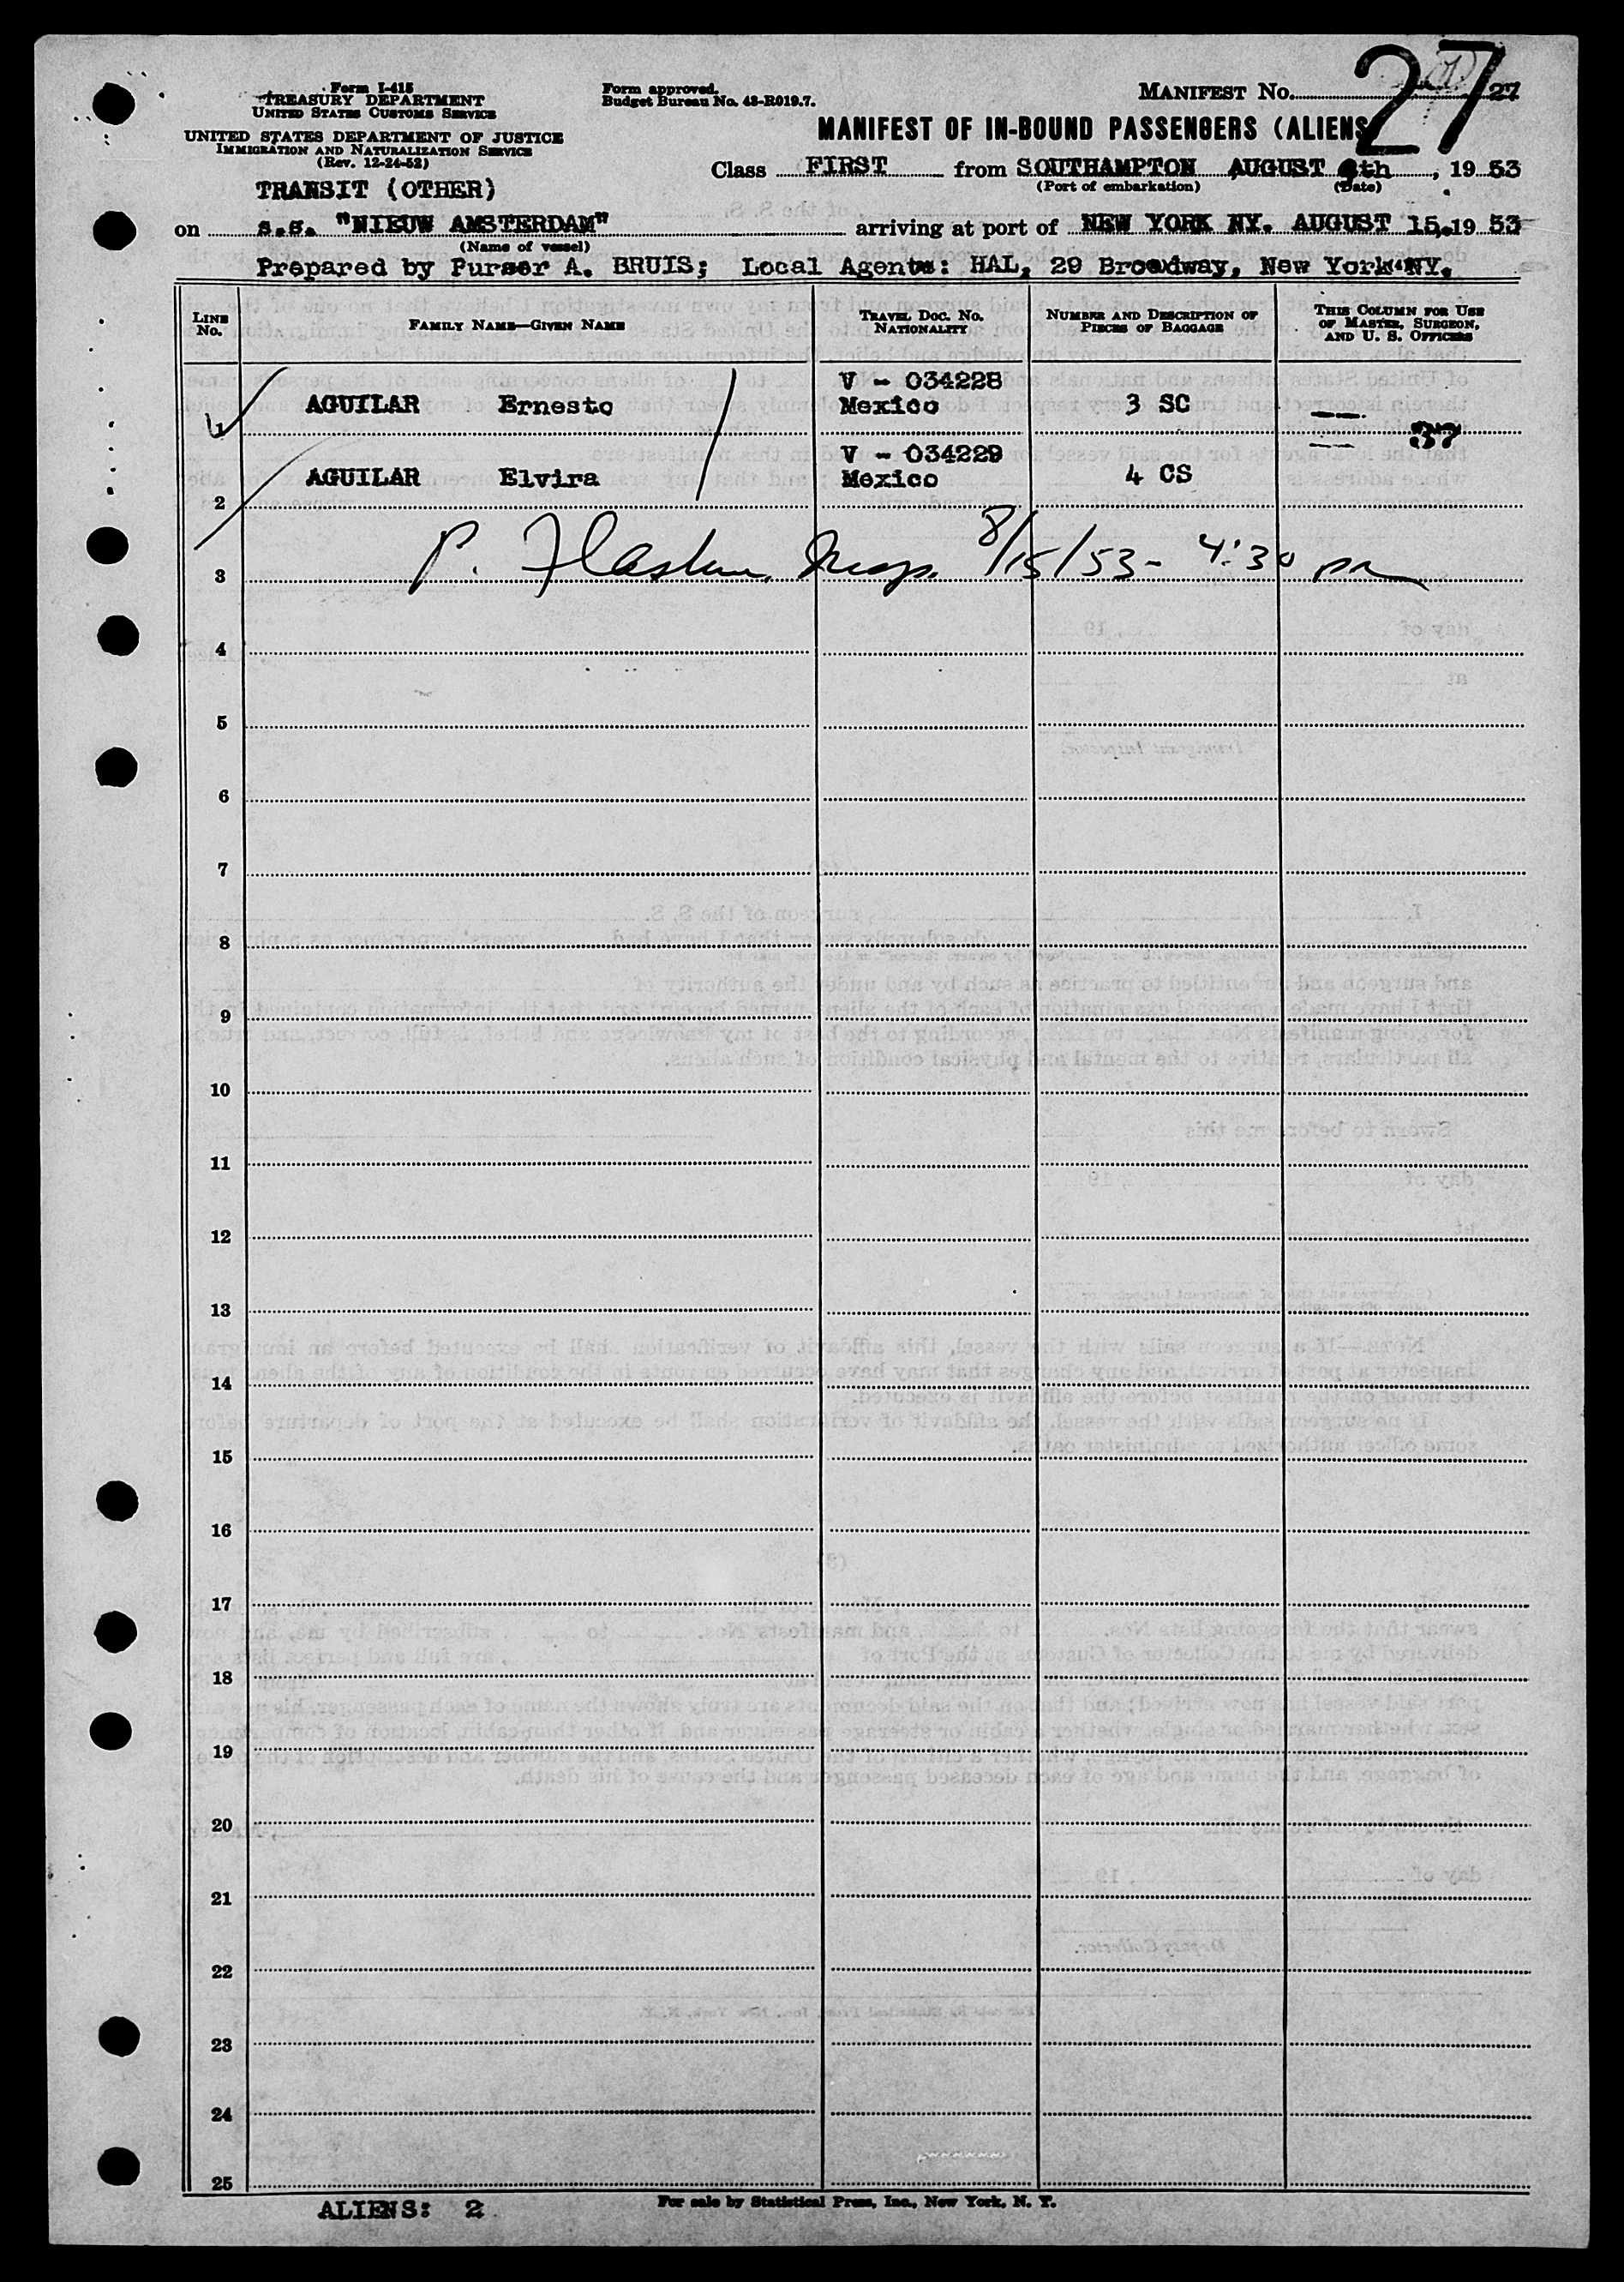 Form I-415
TREASURY DEPARTMENT
UNITED STATES CUSTOMS SERVICE
UNITED STATES DEPARTMENT OF JUSTICE
IMMIGRATION AND NATURALIZATION SERVICE
(Rev. 12-24-52)
TRANSIT (OTHER)
Form approved.
Budget Bureau No. 43-R019.7.
MANIFEST No. 27
27
MANIFEST OF IN-BOUND PASSENGERS (ALIENS
Class FIRST from SOUTHAMPTON AUGUST th, 19 53
(Port of embarkation) (Date)
on s.s. "NIEUW AMSTERDAM" arriving at port of NEW YORK NY. AUGUST 15. 19 53
(Name of vessel)
Prepared by Purser A. BRUIS; Local Agents: HAL, 29 Broadway, New York NY.
LINE No. FAMILY NAME—GIVEN NAME TRAVEL DOC. NO. NATIONALITY NUMBER AND DESCRIPTION OF PIECES OF BAGGAGE THIS COLUMN FOR USE OF MASTER, SURGEON, AND U. S. OFFICERS
V - 034228
1 AGUILAR Ernesto Mexico 3 SC —
37
V - 034229 —
2 AGUILAR Elvira Mexico 4 CS
3 P. Insp. 8/15/53 - 4:30 pm
4
5
6
7
8
9
10
11
12
13
14
15
16
17
18
19
20
21
22
23
24
25
ALIENS: 2
For sale by Statistical Press, Inc., New York, N. Y.